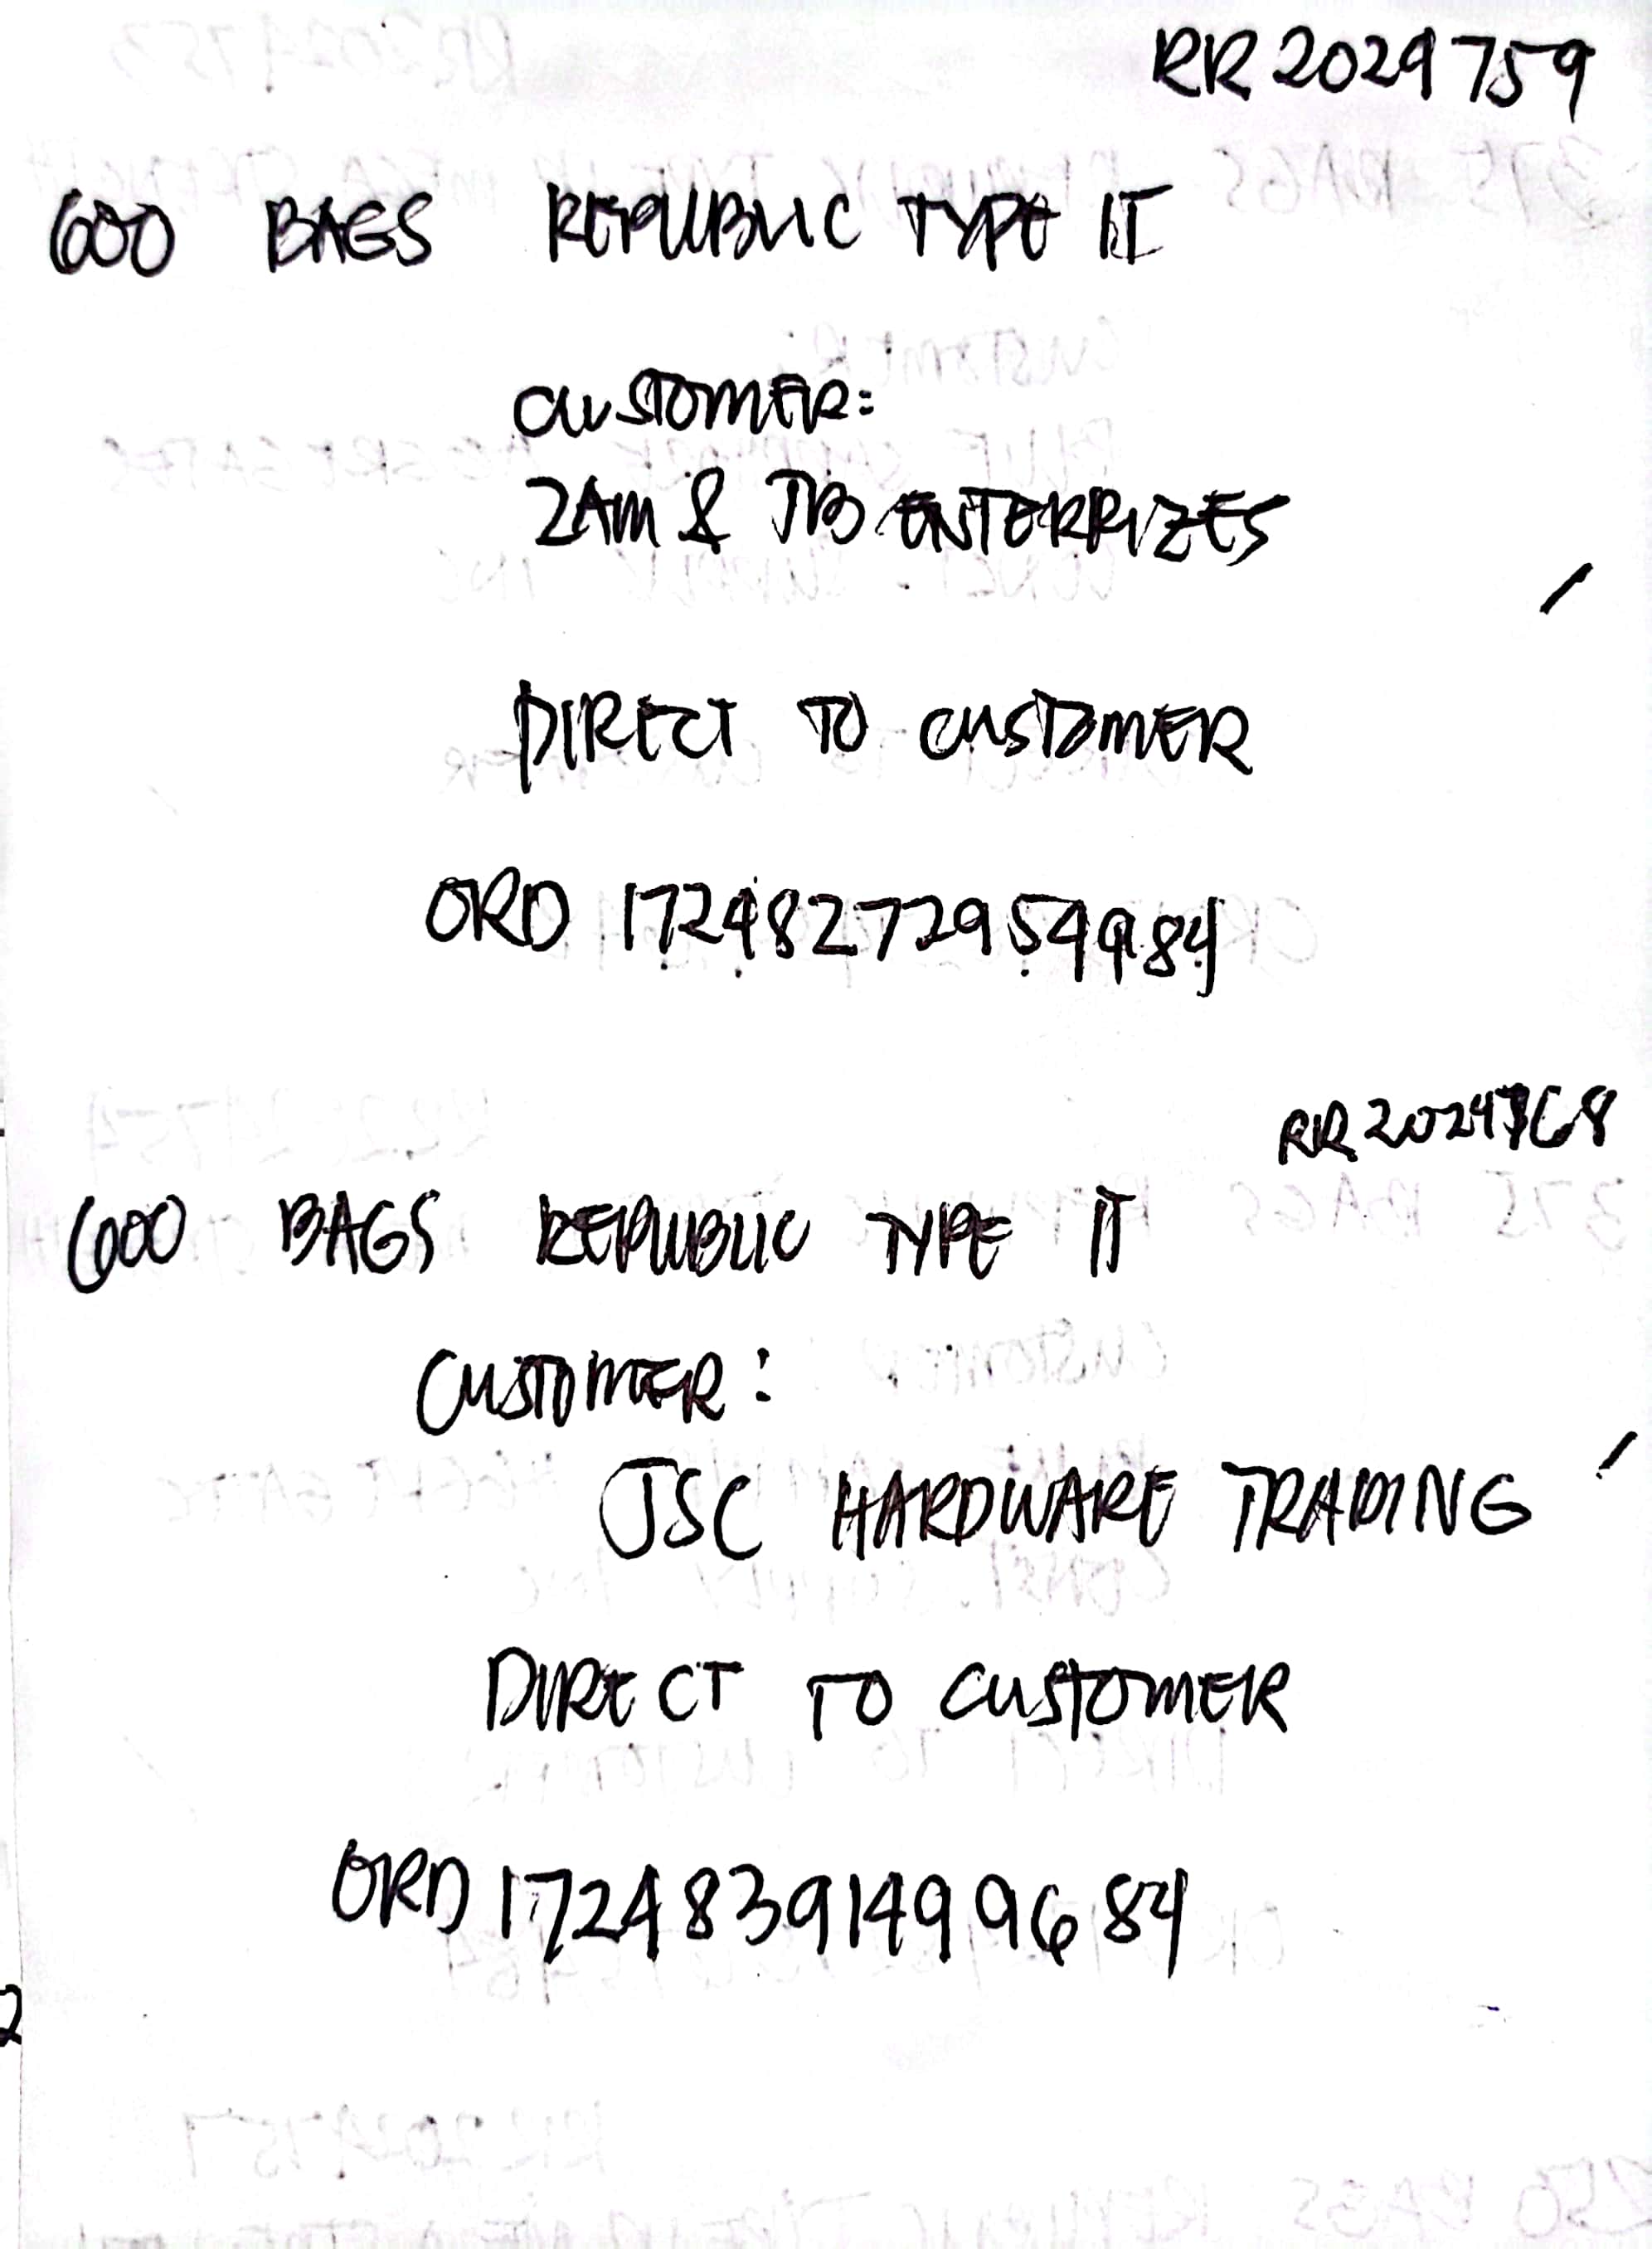 RR 2024759
600 BAGS REPUBLIC TYPE II
CUSTOMER:
2AM & JB ENTERPRIZES
DIRECT TO CUSTOMER
ORD 17248272954984
RR 2024768
600 BAGS REPUBLIC TYPE II
CUSTOMER:
JSC HARDWARE TRADING
DIRECT TO CUSTOMER
ORD 172483914999684
2